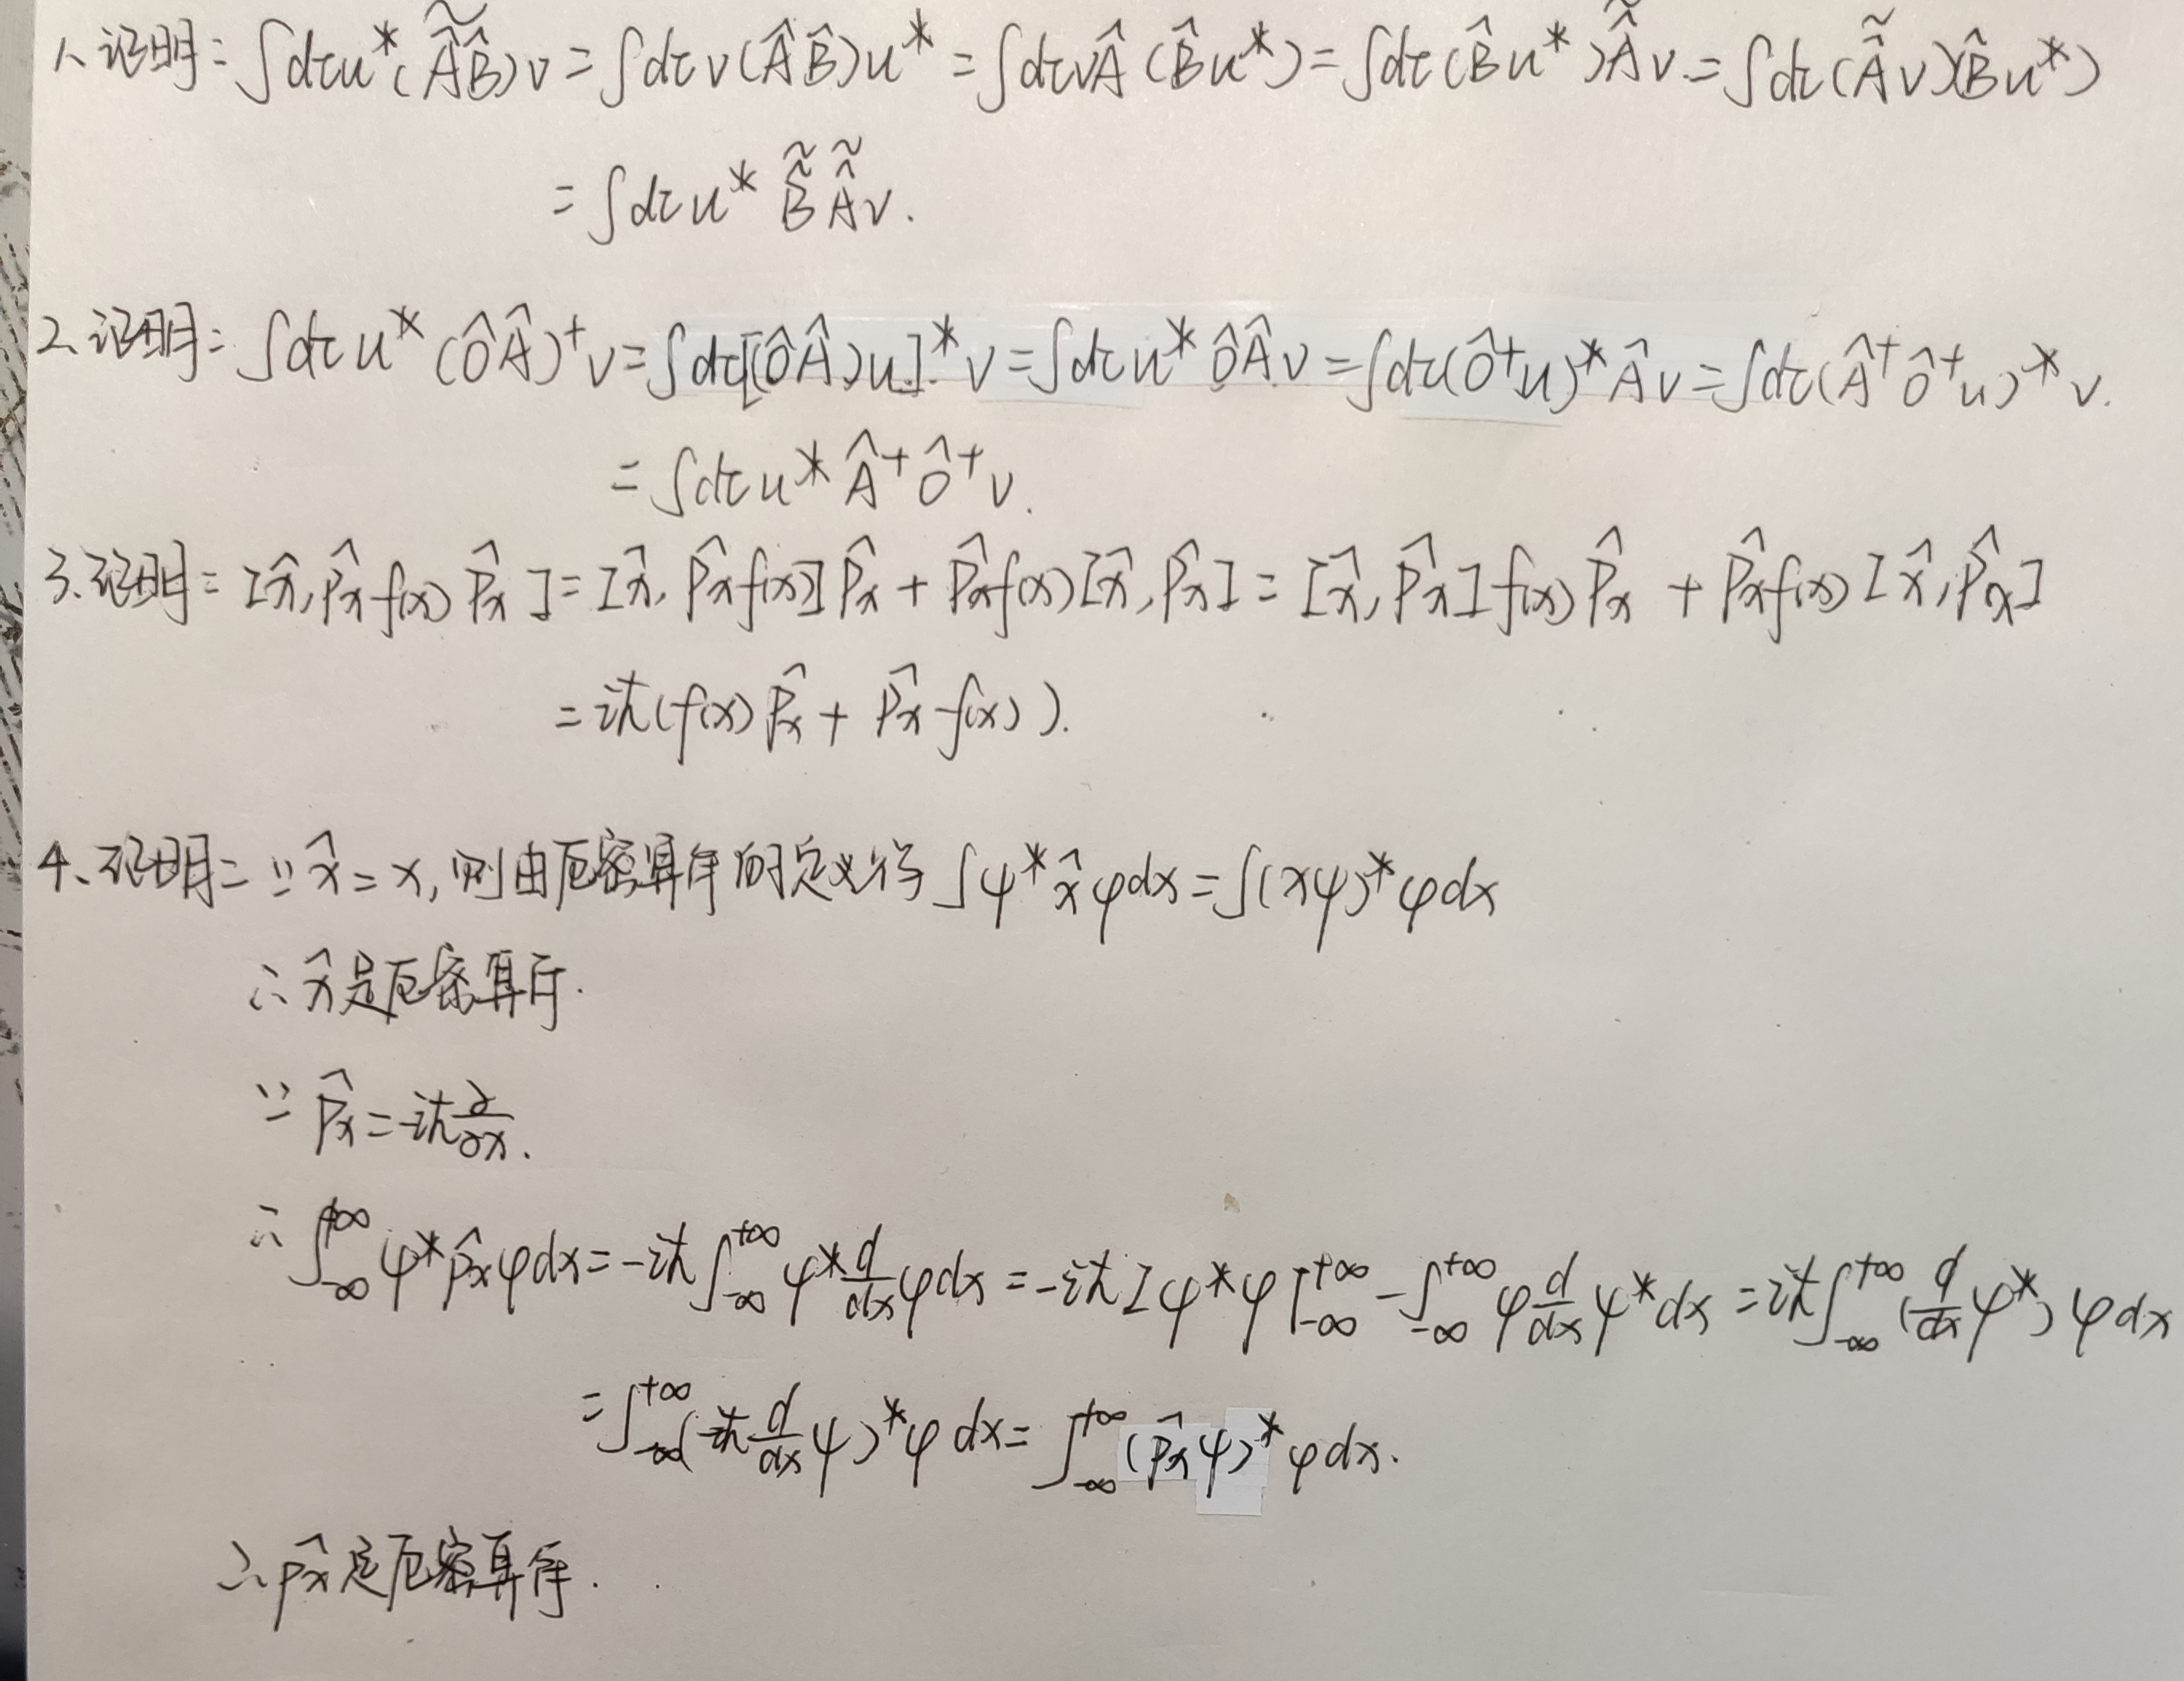 1、证明:∫dτu*(\tilde{ÂB̂})v=∫dτv(ÂB̂)u*=∫dτvÂ(B̂u*)=∫dτ(B̂u*)\tilde{Â}v=∫dτ(\tilde{Â}v)(B̂u*)
=∫dτu*\tilde{B̂}\tilde{Â}v.
2、证明:∫dτu*(ÔÂ)⁺v=∫dτ[(ÔÂ)u]*v=∫dτu*ÔÂv=∫dτ(Ô⁺u)*Âv=∫dτ(Â⁺Ô⁺u)*v.
=∫dτu*Â⁺Ô⁺v.
3、证明:[x̂,p̂ₓf(x)p̂ₓ]=[x̂,p̂ₓf(x)]p̂ₓ+p̂ₓf(x)[x̂,p̂ₓ]=[x̂,p̂ₓ]f(x)p̂ₓ+p̂ₓf(x)[x̂,p̂ₓ]
=iħ(f(x)p̂ₓ+p̂ₓf(x)).
4、证明:∵x̂=x,则由厄密算符的定义得∫ψ*x̂φdx=∫(xψ)*φdx
∴x̂是厄密算符.
∵p̂ₓ=-iħ∂/∂x.
∴∫_{-∞}^{+∞}ψ*p̂ₓφdx=-iħ∫_{-∞}^{+∞}ψ*d/dxφdx=-iħ[ψ*φ|_{-∞}^{+∞}-∫_{-∞}^{+∞}φd/dxψ*dx=iħ∫_{-∞}^{+∞}(d/dxψ*)φdx
=∫_{-∞}^{+∞}(-iħd/dxψ)*φdx=∫_{-∞}^{+∞}(p̂ₓψ)*φdx.
∴p̂ₓ是厄密算符.